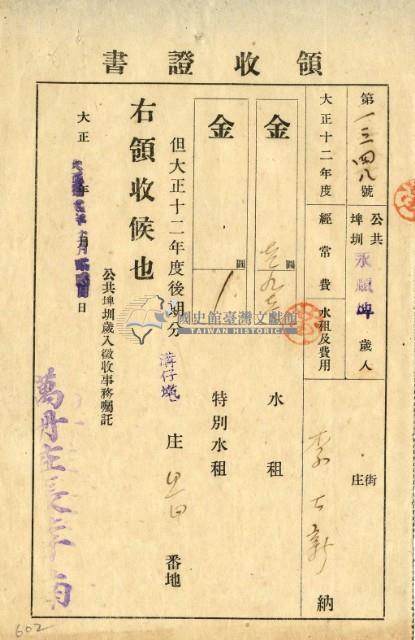 領收證書
第一三四八號
公共埤圳 永順埤 歲入
大正十二年度 經常費 水租及費用
街庄 納
金 圓 水租
金 圓 特別水租
但大正十二年度後期分 溝仔墘 庄 番地
右領收候也
大正 年 月 日
公共埤圳歲入徵收事務囑託
萬丹庄長李南
國史館臺灣文獻館
TAIWAN HISTORICA
602